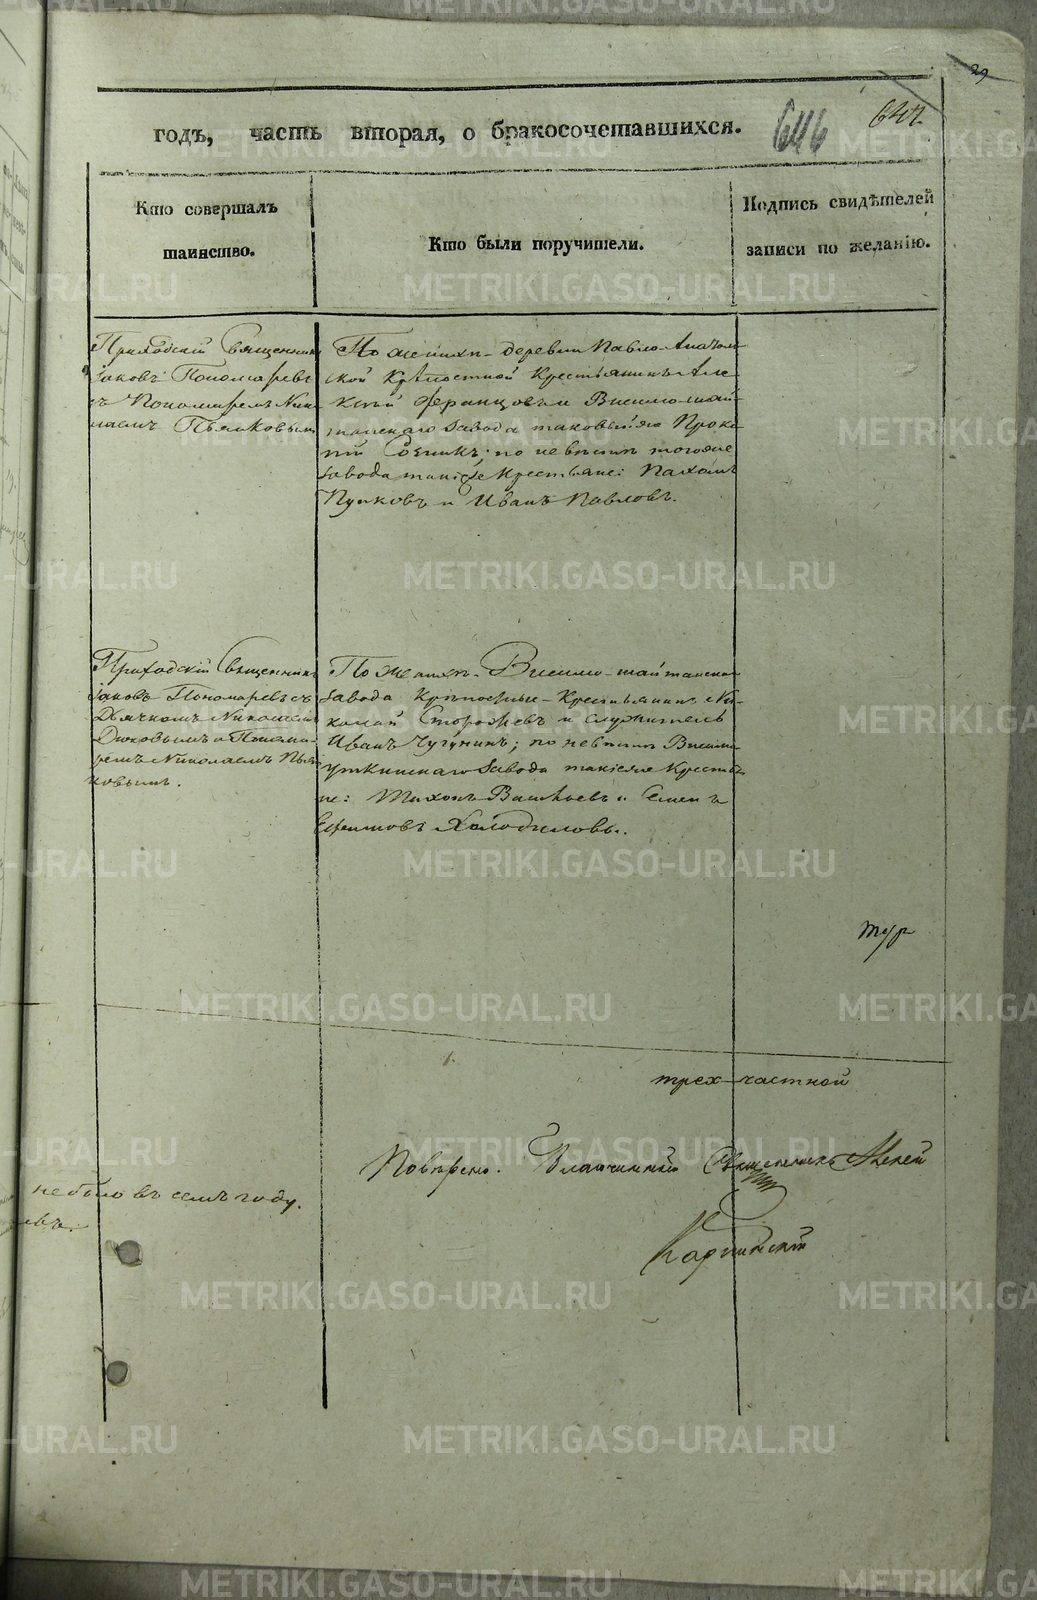 29
647.
646
годъ, часть вторая, о бракосочетавшихся.
Кто совершалъ таинство.
Кто были поручители.
Подпись свидѣтелей записи по желанію.
Приходскій Священникъ
Іаковъ Пономаревъ
съ Пономаремъ Нико-
лаемъ Пьянковымъ
По женихѣ деревни Павло-Анатоль-
ской Крѣпостной Крестьянинъ Але-
ксѣй Францовъ и Висимо-шай-
танскаго Завода таковый же Проко-
пій
по невѣстѣ тогоже
Завода такіе же Крестьяне: Пахомъ
Пулковъ и Иванъ Павловъ.
Приходскій Священникъ
Іаковъ Пономаревъ съ
Дьячкомъ Николаемъ
Дюковымъ и Понома-
ремъ Николаемъ Пьян-
ковымъ.
По женихѣ Висимо-шайтанскаго
Завода Крѣпостные Крестьянинъ Ни-
колай Сторожевъ и служитель
Иванъ Чугунинъ; по невѣстѣ Висимо-
уткинскаго Завода такіеже Крестья-
не: Тихонъ Васильевъ и Семенъ
Ефимовъ Холодиловы.
трех-частной
не было въ семъ году.
евъ.
Повѣрено. Благочинный Священникъ Алексѣй
Карпинскій
METRIKI.GASO-URAL.RU